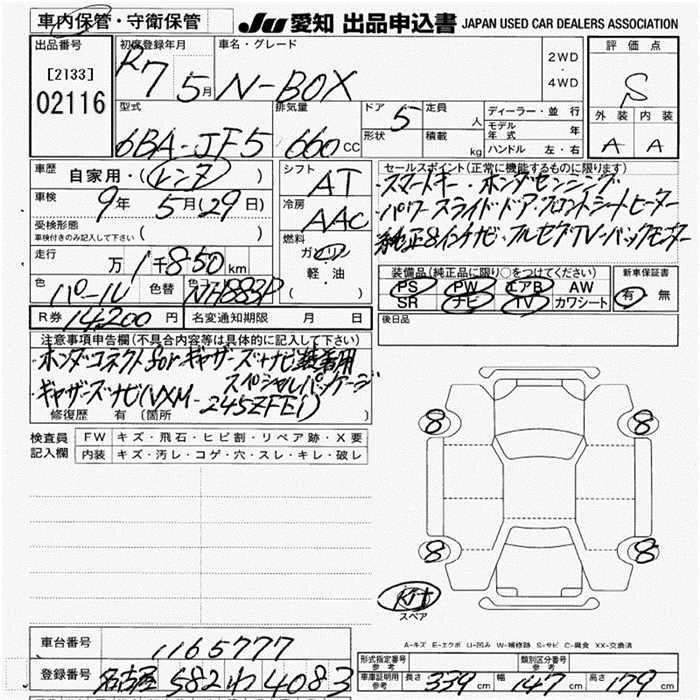 車内保管・守衛保管 JU 愛知 出品申込書 JAPAN USED CAR DEALERS ASSOCIATION
出品番号 初度登録年月 車名・グレード 評価点
[2133] R7 5月 N-BOX 2WD・4WD S
02116 外装 内装
型式 排気量 ドア 5 定員 人 ディーラー・並行
6BA-JF5 660 CC 形状 積載 kg モデル年式 年 A A
ハンドル 左・右
車歴 自家用・(レンタ) シフト AT セールスポイント(正常に機能するものに限ります)
車検 9年 5月(29日) 冷房 AAC ・スマートキー・ホンダセンシング
受検形態 車検付きのみ記入して下さい ( ) 燃料 ガソリン ・パワースライドドア・フロントシートヒーター
走行 万 1千850km 軽・油 ( ) ・純正8インチナビ・フルセグTV・バックモニター
色 パール 色替 色コード NH883P 装備品(純正品に限り○をつけてください) 新車保証書
PS PW エアB AW 有・無
SR ナビ TV カワシート
R券 14,200円 名変通知期限 月 日 後日品
注意事項申告欄(不具合内容等は具体的に記入して下さい)
ホンダコネクト for ギャザーズ+ナビ装着用
スペシャルパッケージ
ギャザーズナビ(VXM-245ZFEi)
修復歴 有 (箇所 )
検査員記入欄 FW キズ・飛石・ヒビ割・リペア跡・X要
内装 キズ・汚レ・コゲ・穴・スレ・キレ・破レ
8 8
8 8
Kit
スペア
A-キズ E-エクボ U-凹み W-補修跡 S-サビ C-腐食 XX-交換済
車台番号 1165777
形式指定番号 参考 類別区分番号 参考
登録番号 名古屋 582 わ 4083 車庫証明用 参考 長さ 339 cm 幅 147 cm 高さ 179 cm